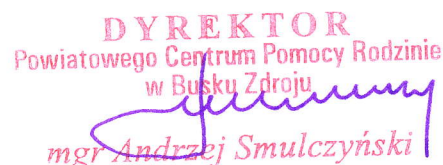 DYREKTOR
Powiatowego Centrum Pomocy Rodzinie
w Busku Zdroju
mgr Andrzej Smulczyński